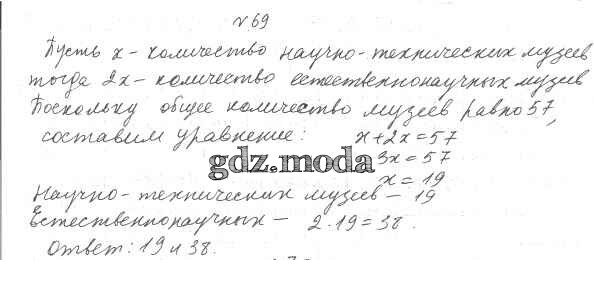 № 69
Пусть x - количество научно-технических музеев
тогда 2x - количество естественнонаучных музеев
Поскольку общее количество музеев равно 57,
составим уравнение: x+2x=57
3x=57
gdz.moda
x=19
Научно-технических музеев - 19
Естественнонаучных - 2·19=38.
Ответ: 19 и 38.